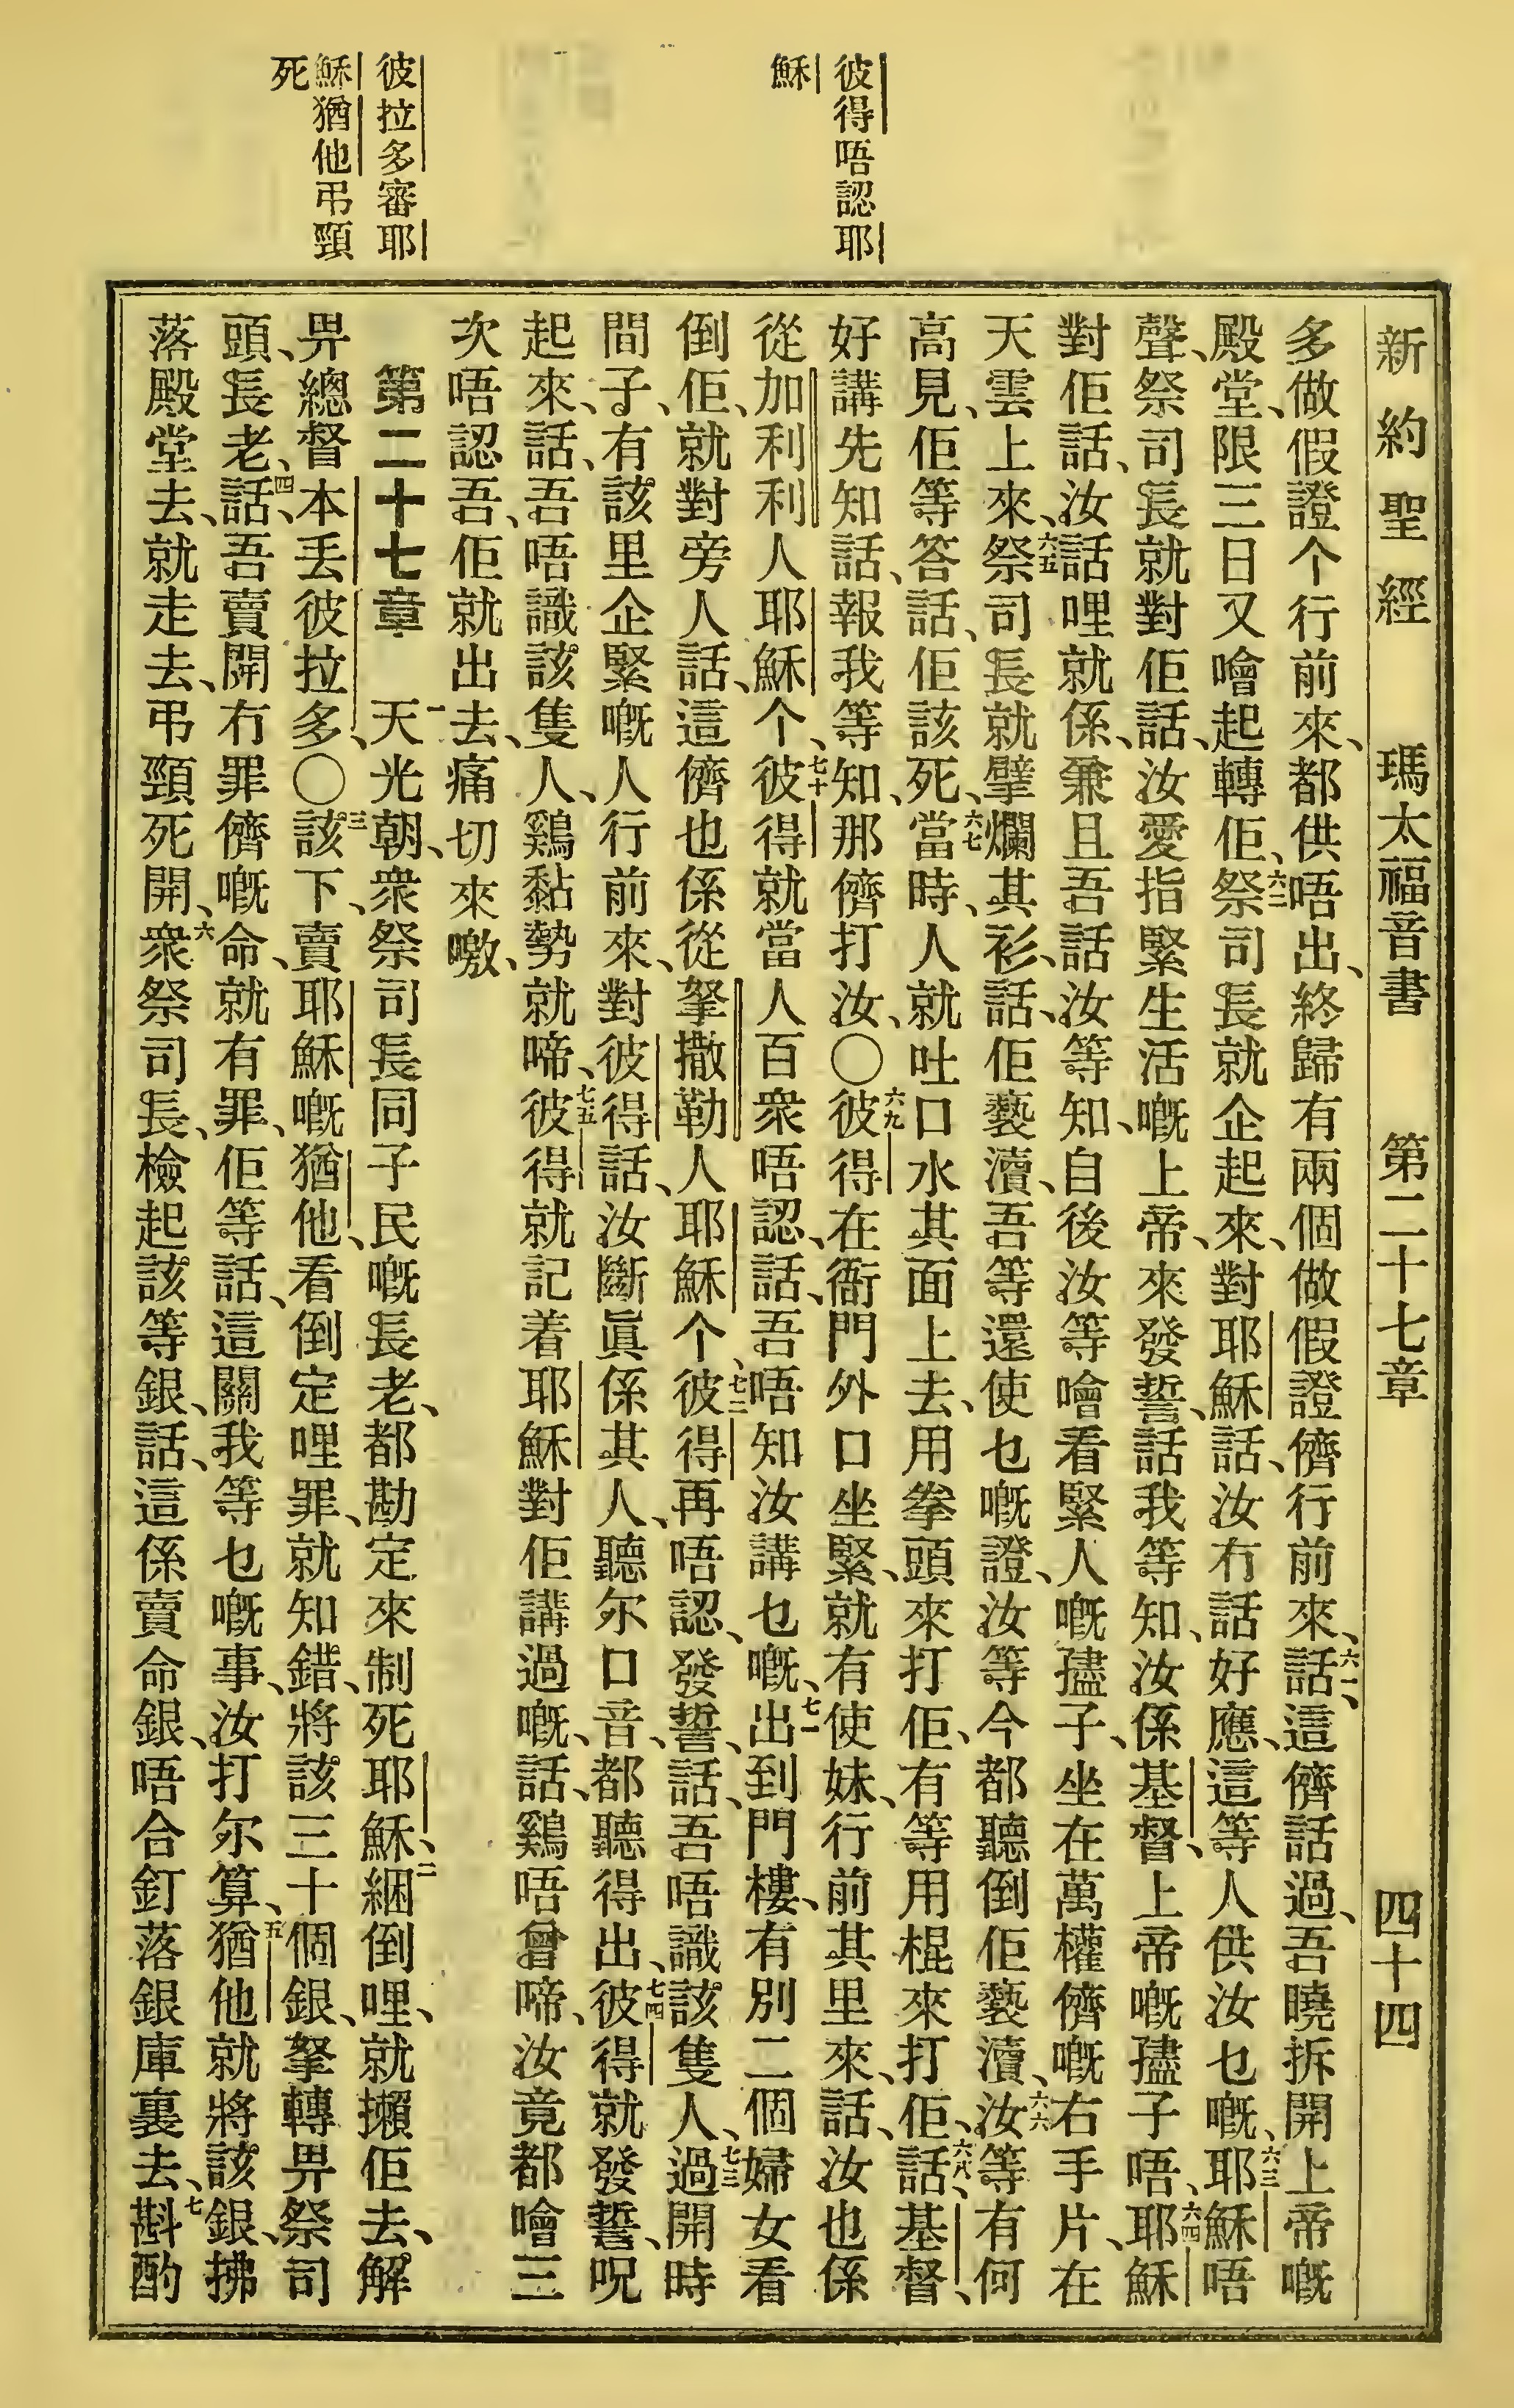 新約聖經 瑪太福音書 第二十七章 四十四
彼得唔認耶
穌
彼拉多審耶
穌猶他弔頸
死
多做假證个行前來、都供唔出、終歸有兩個做假證儕行前來、六一話、這儕話過、吾曉拆開上帝嘅
殿堂、限三日又噲起轉佢、六二祭司長就企起來、對耶穌話、汝冇話好應、這等人供汝乜嘅、六三耶穌唔
聲、祭司長就對佢話、汝愛指緊生活嘅上帝、來發誓、話我等知、汝係基督、上帝嘅孻子唔、六四耶穌
對佢話、汝話哩就係、兼且吾話汝等知、自後汝等噲看緊人嘅孻子、坐在萬權儕嘅右手片、在
天雲上來、六五祭司長就擘爛其衫、話、佢褻瀆、吾等還使乜嘅證、汝等今都聽倒佢褻瀆、六六汝等有何
高見、佢等答話、佢該死、六七當時、人就吐口水其面上去、用拳頭來打佢、有等用棍來打佢、六八話、基督、
好講先知話、報我等知、那儕打汝、〇六九彼得在衙門外口坐緊、就有使妹、行前其里來、話、汝也係
從加利利人耶穌个、七十彼得就當人百衆唔認、話、吾唔知汝講乜嘅、七一出到門樓、有別二個婦女看
倒佢、就對旁人話、這儕也係從拏撒勒人耶穌个、七二彼得再唔認、發誓、話、吾唔識該隻人、七三過開時
間子、有該里企緊嘅人行前來、對彼得話、汝斷眞係其人、聽尔口音、都聽得出、七四彼得就發誓、呪
起來、話、吾唔識該隻人、鷄黏勢就啼、七五彼得就記着耶穌對佢講過嘅、話、鷄唔曾啼、汝竟都噲三
次唔認吾、佢就出去、痛切來噭、
第二十七章 一天光朝、衆祭司長同子民嘅長老、都勘定來制死耶穌、二綑倒哩、就攋佢去、解
畀總督本丢彼拉多、〇三該下、賣耶穌嘅猶他、看倒定哩罪、就知錯、將該三十個銀、拏轉畀祭司
頭、長老、四話、吾賣開冇罪儕嘅命、就有罪、佢等話、這關我等乜嘅事、汝打尔算、五猶他就將該銀、拂
落殿堂去、就走去、弔頸死開、六衆祭司長、檢起該等銀、話、這係賣命銀、唔合釘落銀庫裏去、七斟酌